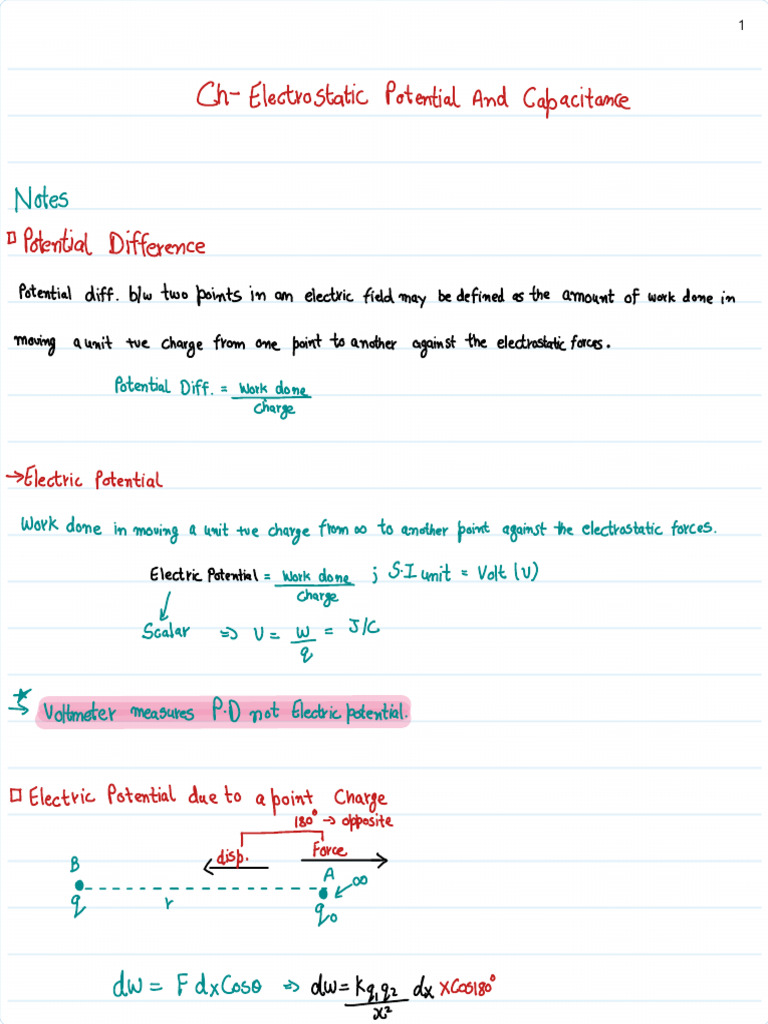 1
Ch- Electrostatic Potential And Capacitance
Notes
Potential Difference
Potential diff. b/w two points in an electric field may be defined as the amount of work done in
moving a unit +ve charge from one point to another against the electrostatic forces.
Potential Diff. = Work done
Charge
→ Electric Potential
Work done in moving a unit +ve charge from ∞ to another point against the electrostatic forces.
Electric Potential = Work done ; S.I unit = Volt (V)
Charge
Scalar ⇒ V = W = J/C
q
★→ Voltmeter measures P.D not Electric potential.
Electric Potential due to a point Charge
180° → opposite
disp. Force
B A ∞
q r q₀
dw = F dx Cosθ ⇒ dw = kq₁q₂ dx x Cos180°
x²